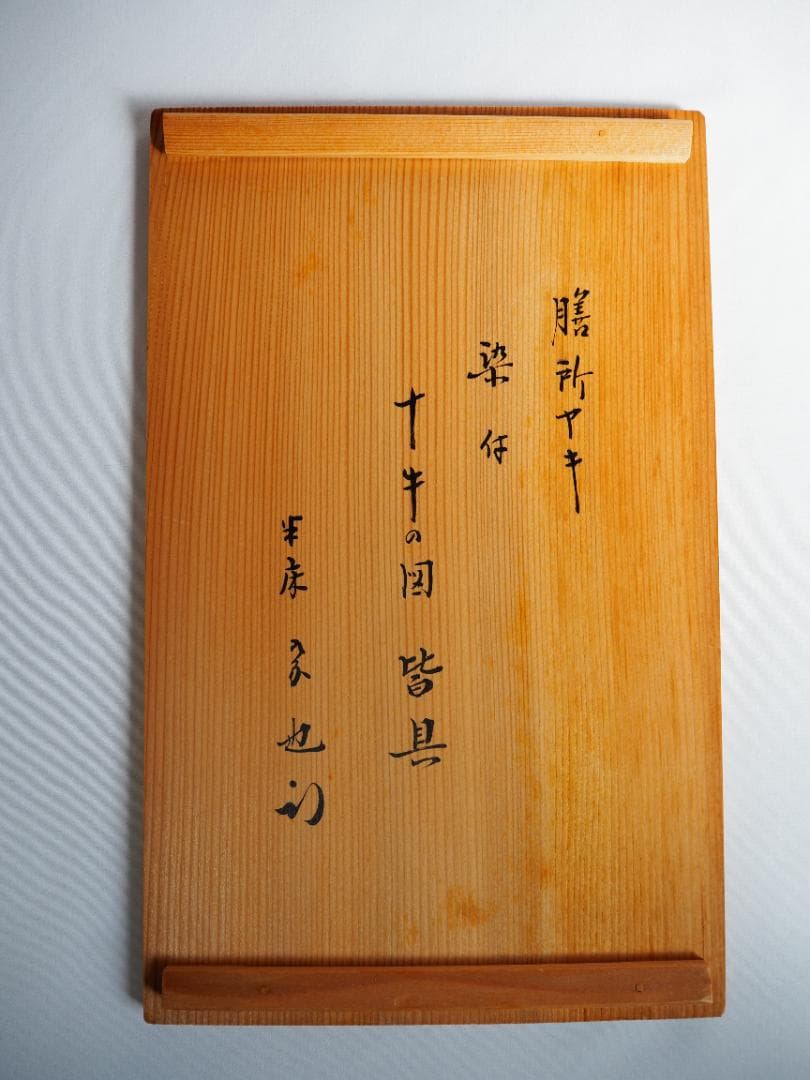 膳所ヤキ
染付
十牛の図 皆具
半床 也